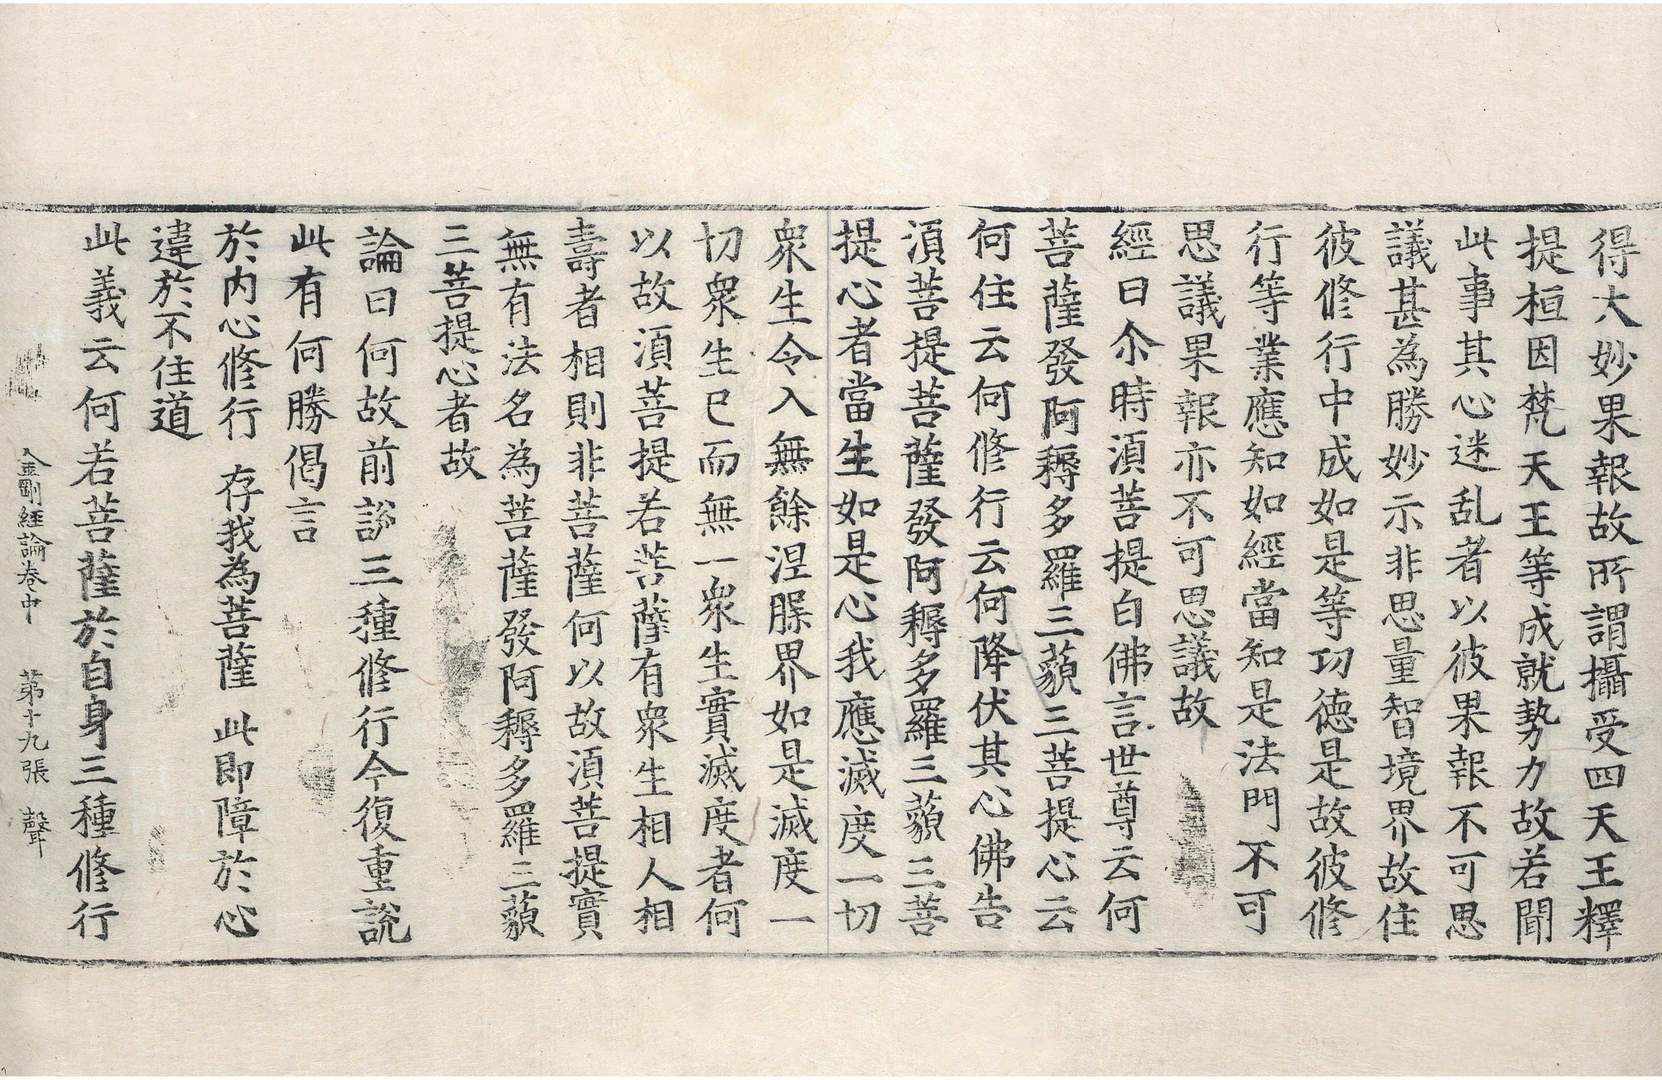 得大妙果報故所謂攝受四天王釋
提桓因梵天王等成就勢力故若聞
此事其心迷乱者以彼果報不可思
議甚為勝妙示非思量智境界故住
彼修行中成如是等功德是故彼修
行等業應知如經當知是法門不可
思議果報亦不可思議故
經曰尒時湏菩提白佛言世尊云何
菩薩發阿耨多羅三藐三菩提心云
何住云何修行云何降伏其心佛告
湏菩提菩薩發阿耨多羅三藐三菩
提心者當生如是心我應滅度一切
衆生令入無餘涅槃界如是滅度一
切衆生已而無一衆生實滅度者何
以故湏菩提若菩薩有衆生相人相
壽者相則非菩薩何以故湏菩提實
無有法名為菩薩發阿耨多羅三藐
三菩提心者故
論曰何故前說三種修行今復重說
此有何勝偈言
於內心修行　存我為菩薩　此即障於心
違於不住道
此義云何若菩薩於自身三種修行
金剛經論卷中　第十九張　聲